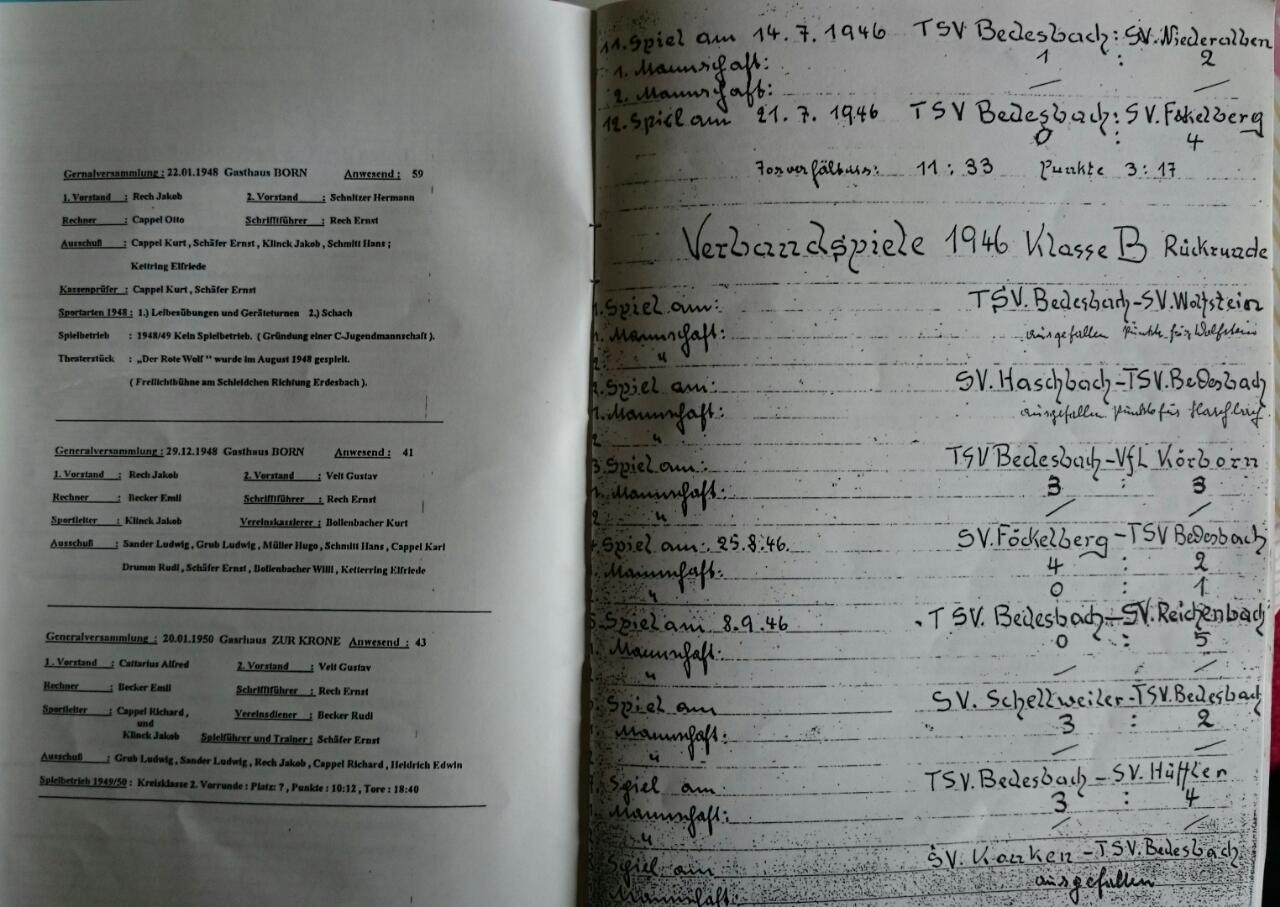 Gernalversammlung : 22.01.1948 Gasthaus BORN Anwesend : 59
1. Vorstand : Rech Jakob 2. Vorstand : Schnitzer Hermann
Rechner : Cappel Otto Schriftführer : Rech Ernst
Ausschuß : Cappel Kurt , Schäfer Ernst , Klinck Jakob , Schmitt Hans ;
Kettring Elfriede
Kassenprüfer : Cappel Kurt , Schäfer Ernst
Sportarten 1948 : 1.) Leibesübungen und Geräteturnen 2.) Schach
Spielbetrieb : 1948/49 Kein Spielbetrieb. ( Gründung einer C-Jugendmannschaft ).
Theaterstück : „Der Rote Wolf " wurde im August 1948 gespielt.
( Freilichtbühne am Schleidchen Richtung Erdesbach ).
Generalversammlung : 29.12.1948 Gasthaus BORN Anwesend : 41
1. Vorstand : Rech Jakob 2. Vorstand : Veit Gustav
Rechner : Becker Emil Schriftführer : Rech Ernst
Sportleiter : Klinck Jakob Vereinskassierer : Bollenbacher Kurt
Ausschuß : Sander Ludwig , Grub Ludwig , Müller Hugo , Schmitt Hans , Cappel Karl
Drumm Rudi , Schäfer Ernst , Bollenbacher Willi , Ketterring Elfriede
Generalversammlung : 20.01.1950 Gasrhaus ZUR KRONE Anwesend : 43
1. Vorstand : Cattarius Alfred 2. Vorstand : Veit Gustav
Rechner : Becker Emil Schriftführer : Rech Ernst
Sportleiter : Cappel Richard , Vereinsdiener : Becker Rudi
und
Klinck Jakob Spielführer und Trainer : Schäfer Ernst
Ausschuß : Grub Ludwig , Sander Ludwig , Rech Jakob , Cappel Richard , Heidrich Edwin
Spielbetrieb 1949/50 : Kreisklasse 2. Vorrunde : Platz: 7 , Punkte : 10:12 , Tore : 18:40
11. Spiel am 14.7.1946 TSV Bedesbach : SV. Niederalben
1. Mannschaft: 1 : 2
2. Mannschaft: / /
12. Spiel am 21.7.1946 TSV Bedesbach : SV. Föckelberg
0 4
Torverhältnis: 11:33 Punkte 3:17
Verbandspiele 1946 Klasse B Rückrunde
1. Spiel am: TSV. Bedesbach - SV. Wolfstein
1. Mannschaft: ausgefallen Punkte für Wolfstein
2 "
2. Spiel am: SV. Haschbach - TSV. Bedesbach
1. Mannschaft: ausgefallen Punkte für Haschbach
2 "
3. Spiel am: TSV Bedesbach - VfL Körborn
1. Mannschaft: 3 : 3
2 " / /
4. Spiel am: 25.8.46. SV. Föckelberg - TSV Bedesbach
Mannschaft: 4 : 2
" 0 : 1
Spiel am 8.9.46 TSV. Bedesbach - SV. Reichenbach
Mannschaft: 0 : 5
" / /
Spiel am SV. Schellweiler - TSV. Bedesbach
Mannschaft: 3 : 2
" / /
7. Spiel am TSV. Bedesbach - SV. Hüffler
Mannschaft: 3 : 4
" / /
Spiel am SV. Konken - TSV. Bedesbach
Mannschaft: ausgefallen